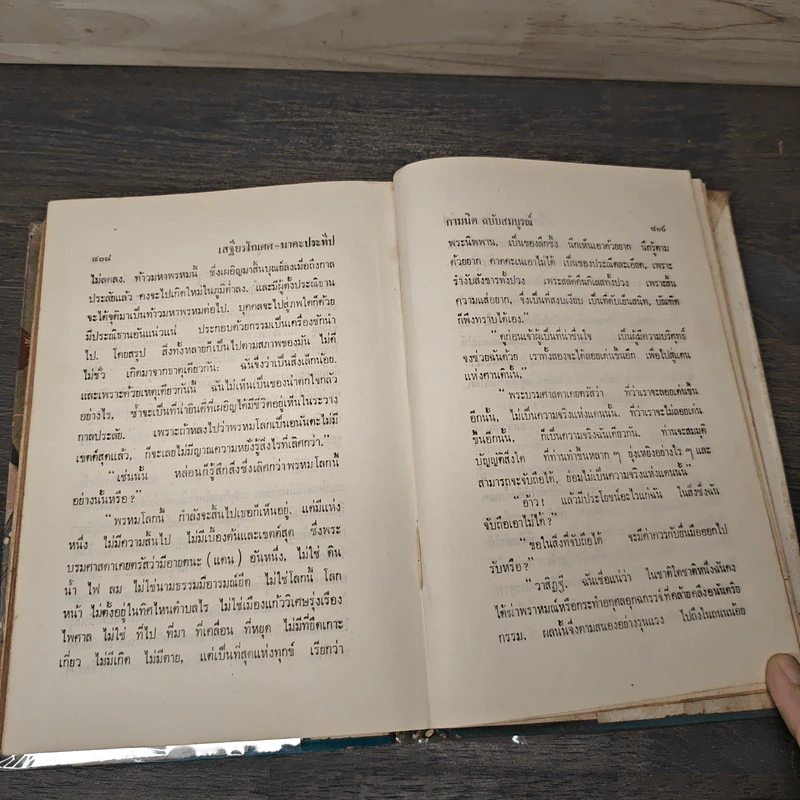 ๔๐๘ เสฐียรโกเศศ-นาคะประทีป
ไม่ลดลง. ท้าวมหาพรหมนี้ ซึ่งเผอิญมาสิ้นบุณย์ลงเมื่อถึงกาล
ประลัยแล้ว คงจะไปเกิดใหม่ในภูมิต่ำลง. และมีผู้ตั้งประณิธาน
จะได้จุติมาเป็นท้าวมหาพรหมต่อไป. บุคคลจะไปสู่ภพใดก็ด้วย
มีประณิธานอันแน่วแน่ ประกอบด้วยกรรมเป็นเครื่องชักนำ
ไป. โดยสรุป สิ่งทั้งหลายก็เป็นไปตามสภาพของมัน ไม่ดี
ไม่ชั่ว เกิดมาจากธาตุเดียวกัน: ฉันจึงว่าเป็นสิ่งเล็กน้อย.
และเพราะด้วยเหตุเดียวกันนี้ ฉันไม่เห็นเป็นของน่าตกใจกลัว
อย่างไร, ซ้ำจะเป็นที่น่ายินดีที่เผอิญได้มีชีวิตอยู่เห็นในระวาง
กาลประลัย. เพราะถ้าหลงไปว่าพรหมโลกเป็นอนันตะไม่มี
เขตต์สุดแล้ว, ก็จะเลยไม่มีญาณความหยั่งรู้สิ่งไรที่เลิศกว่า.”
“เช่นนั้น หล่อนก็รู้สึกสิ่งซึ่งเลิศกว่าพรหมโลกนี้
อย่างนั้นหรือ?”
“พรหมโลกนี้ กำลังจะสิ้นไปเธอก็เห็นอยู่, แต่มีแห่ง
หนึ่ง ไม่มีความสิ้นไป ไม่มีเบื้องต้นและเขตต์สุด ซึ่งพระ
บรมศาสดาเคยตรัสว่ามีอายตนะ (แดน) อันหนึ่ง, ไม่ใช่ ดิน
น้ำ ไฟ ลม ไม่ใช่นามธรรมมีอารมณ์ยึด ไม่ใช่โลกนี้ โลก
หน้า ไม่ตั้งอยู่ในทิศไหนตำบลไร ไม่ใช่เมืองแก้ววิเศษรุ่งเรือง
ไพศาล ไม่ใช่ ที่ไป ที่มา ที่เคลื่อน ที่หยุด ไม่มีที่ยึดเกาะ
เกี่ยว ไม่มีเกิด ไม่มีตาย, แต่เป็นที่สุดแห่งทุกข์ เรียกว่า
กามนิต ฉบับสมบูรณ์ ๔๐๙
พระนิพพาน, เป็นของลึกซึ้ง นึกเห็นเอาด้วยยาก นึกรู้ตาม
ด้วยยาก คาดคะเนเอาไม่ได้ เป็นของประณีตละเอียด, เพราะ
รำงับสังขารทั้งปวง เพราะสลัดคืนกิเลสทั้งปวง เพราะสิ้น
ความแส่อยาก, จึงเป็นที่สงบเงียบ เป็นที่ดับเย็นสนิท, บัณฑิต
ก็พึงทราบได้เอง.”
“ดูก่อนเจ้าผู้เป็นที่น่าชื่นใจ เป็นผู้มีความบริศุทธิ์
จงช่วยฉันด้วย เราทั้งสองจะได้ลอยเด่นขึ้นอีก เพื่อไปสู่แดน
แห่งศานตินั้น,”
“พระบรมศาสดาเคยตรัสว่า ที่ว่าเราจะลอยเด่นขึ้น
อีกนั้น, ไม่เป็นความจริงแห่งแดนนั้น. ที่ว่าเราจะไม่ลอยเด่น
ขึ้นอีกนั้น, ก็เป็นความจริงฉันเดียวกัน. ท่านจะสมมุติ
บัญญัติสิ่งใด ที่ท่านทำขึ้นหลาก ๆ ยุ่งเหยิงอย่างไร ๆ และ
สามารถจะจับถือได้, ย่อมไม่เป็นความจริงแห่งแดนนั้น”
“อ้าว! แล้วมีประโยชน์อะไรแก่ฉัน ในสิ่งซึ่งฉัน
จับถือเอาไม่ได้?”
“ขอในสิ่งที่จับถือได้ จะมีค่าควรกับยื่นมือออกไป
รับหรือ?”
“วาสิฏฐี. ฉันเชื่อแน่ว่า ในชาติใดชาติหนึ่งฉันคง
ได้ฆ่าพราหมณ์หรือกระทำอกุศลอุกฉกรรจ์ที่คล้ายคลึงอนันตริย
กรรม. ผลนั้นจึงตามสนองอย่างรุนแรง ไปถึงในถนนน้อย